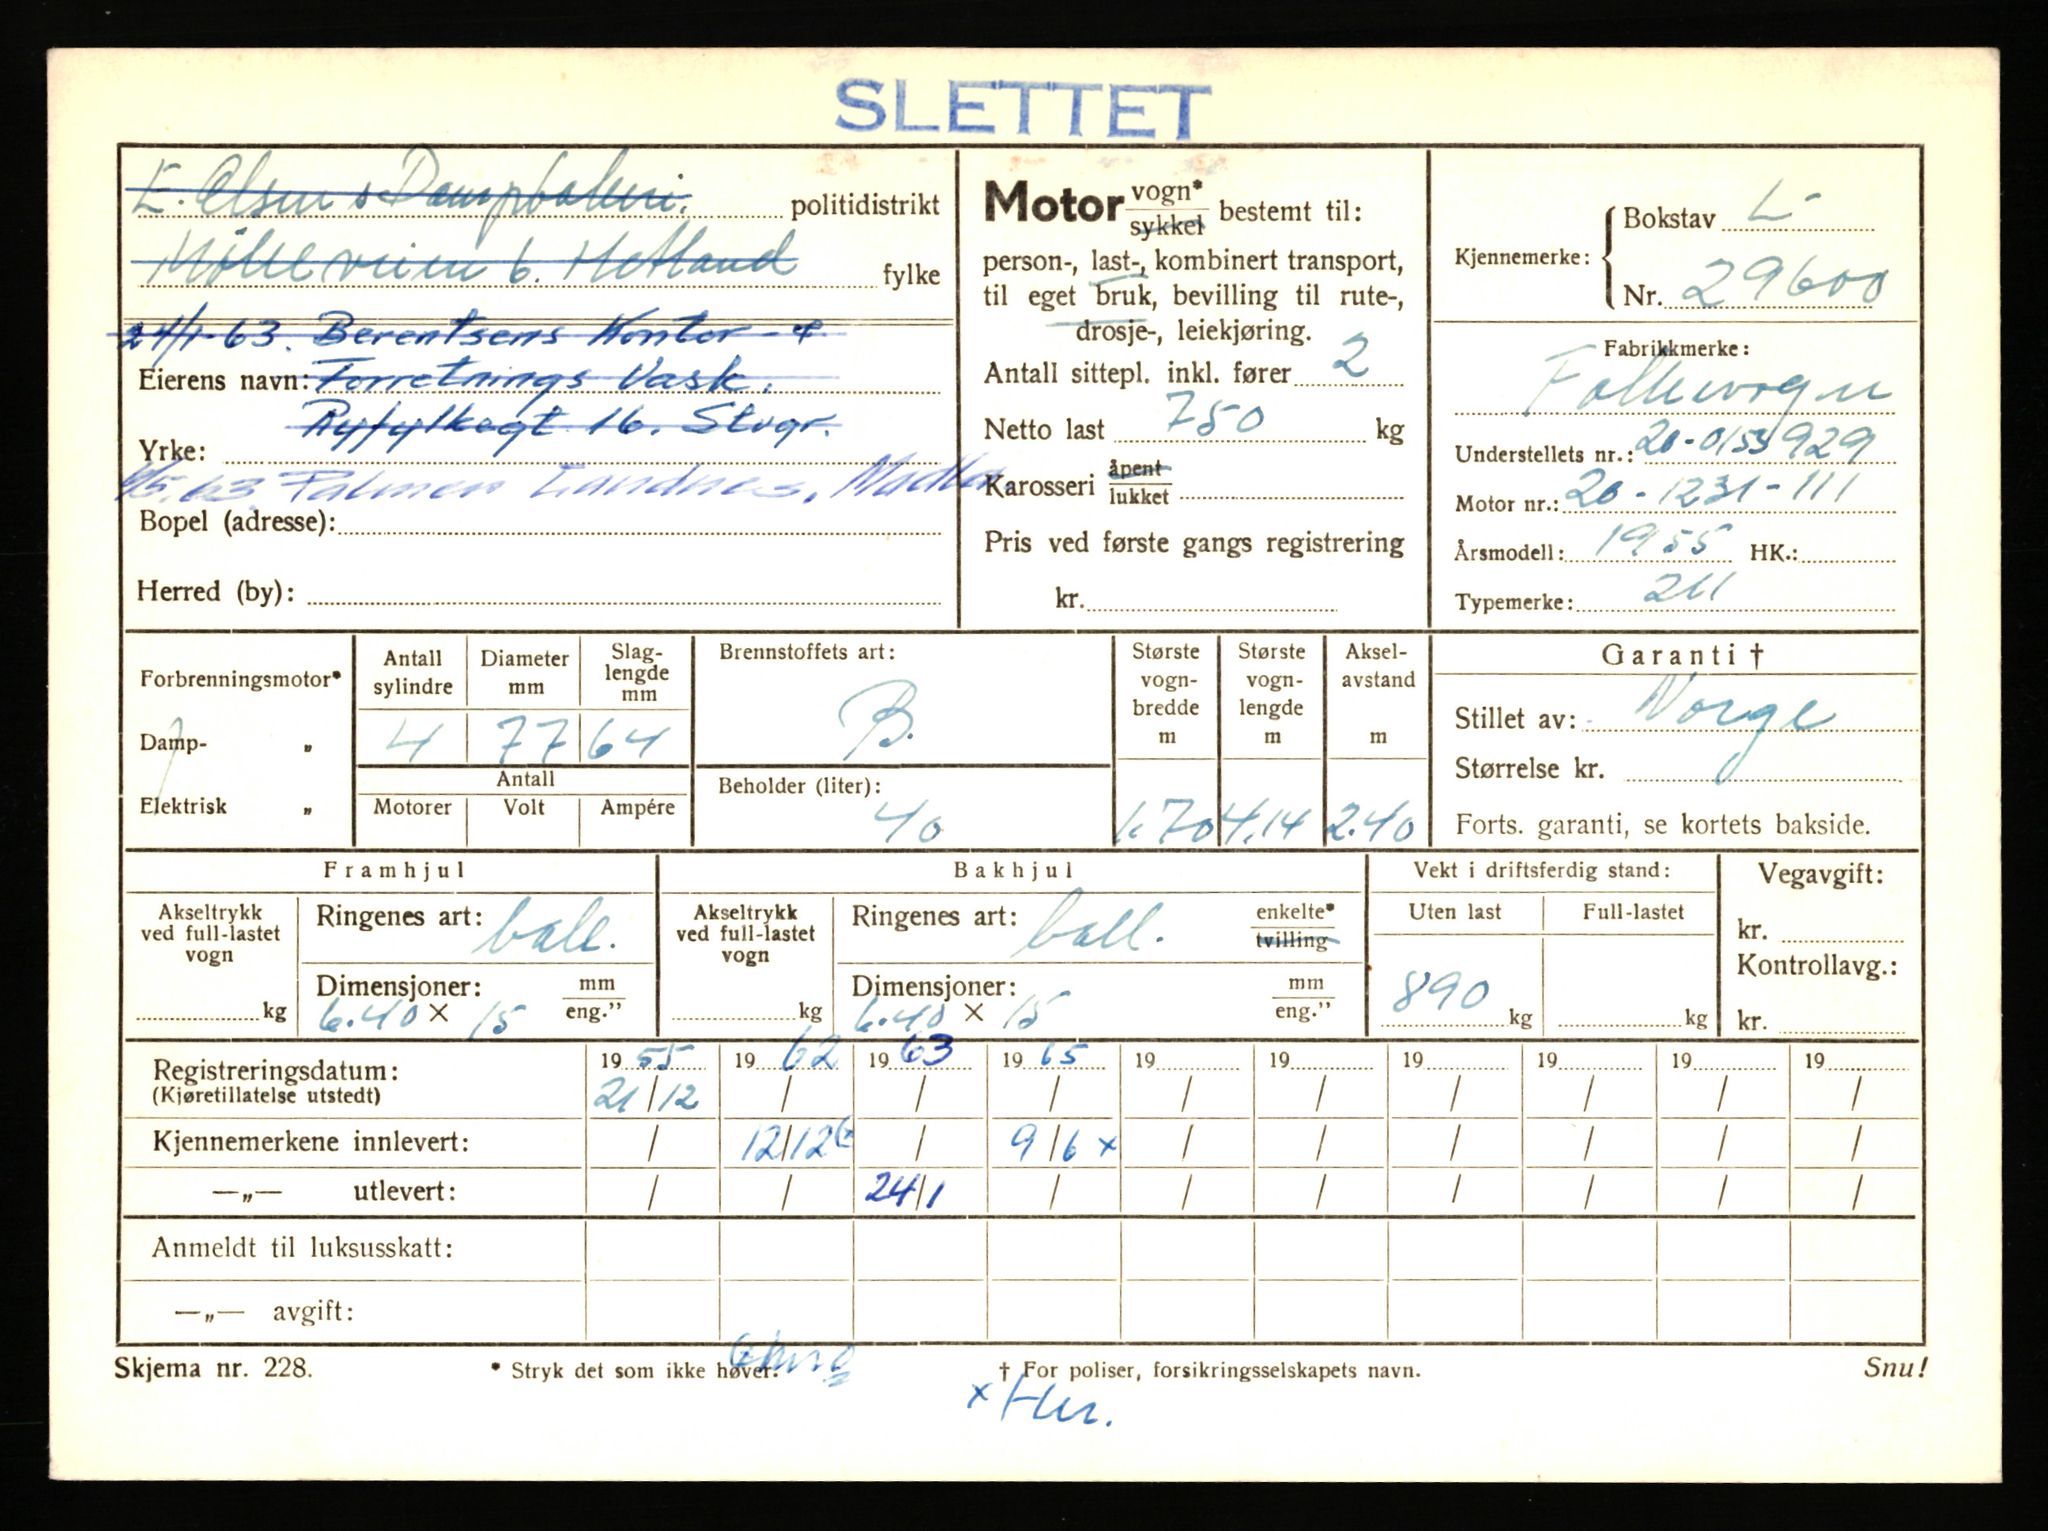 SLETTET
E. Olsens Dampbakeri. politidistrikt
Mølleveien 6. Hetland fylke
24/1-63. Berentsens Kontor &
Eierens navn: Forretnings Vask.
Ryfylkegt 16. Stvgr.
Yrke:
/5.63. Palmer Landnes, Madla
Bopel (adresse):
Herred (by):
Motor vogn* sykkel bestemt til:
person-, last-, kombinert transport,
til eget bruk, bevilling til rute-,
drosje-, leiekjøring.
Antall sittepl. inkl. fører 2
Netto last 750 kg
Karosseri åpent lukket
Pris ved første gangs registrering
kr.
Kjennemerke: Bokstav L-
Nr. 29600
Fabrikkmerke:
Folkevogn
Understellets nr.: 20-0153929
Motor nr.: 20-1231-111
Årsmodell: 1955 HK.:
Typemerke: 211
Forbrenningsmotor*
Damp- „
Elektrisk „
Antall sylindre 4
Diameter mm 77
Slaglengde mm 64
Antall
Motorer Volt Ampére
Brennstoffets art:
B.
Beholder (liter):
40
Største vognbredde m 1.70
Største vognlengde m 4.14
Akselavstand m 2.40
Garanti †
Stillet av: Norge
Størrelse kr.
Forts. garanti, se kortets bakside.
Framhjul
Akseltrykk ved full-lastet vogn
kg
Ringenes art: ball.
Dimensjoner: mm eng."
6.40 × 15
Bakhjul
Akseltrykk ved full-lastet vogn
kg
Ringenes art: ball. enkelte* tvilling
Dimensjoner: mm eng."
6.40 × 15
Vekt i driftsferdig stand:
Uten last Full-lastet
890 kg kg
Vegavgift:
kr.
Kontrollavg.:
kr.
Registreringsdatum: 19 55 19 62 19 63 19 65 19 19 19 19 19 19
(Kjøretillatelse utstedt) 21/12 / / / / / / / / /
Kjennemerkene innlevert: / 12/12 / 9/6 x / / / / / /
—„— utlevert: / / 24/1 / / / / / / /
Anmeldt til luksusskatt:
—„— avgift:
Skjema nr. 228. * Stryk det som ikke høver. † For poliser, forsikringsselskapets navn. Snu!